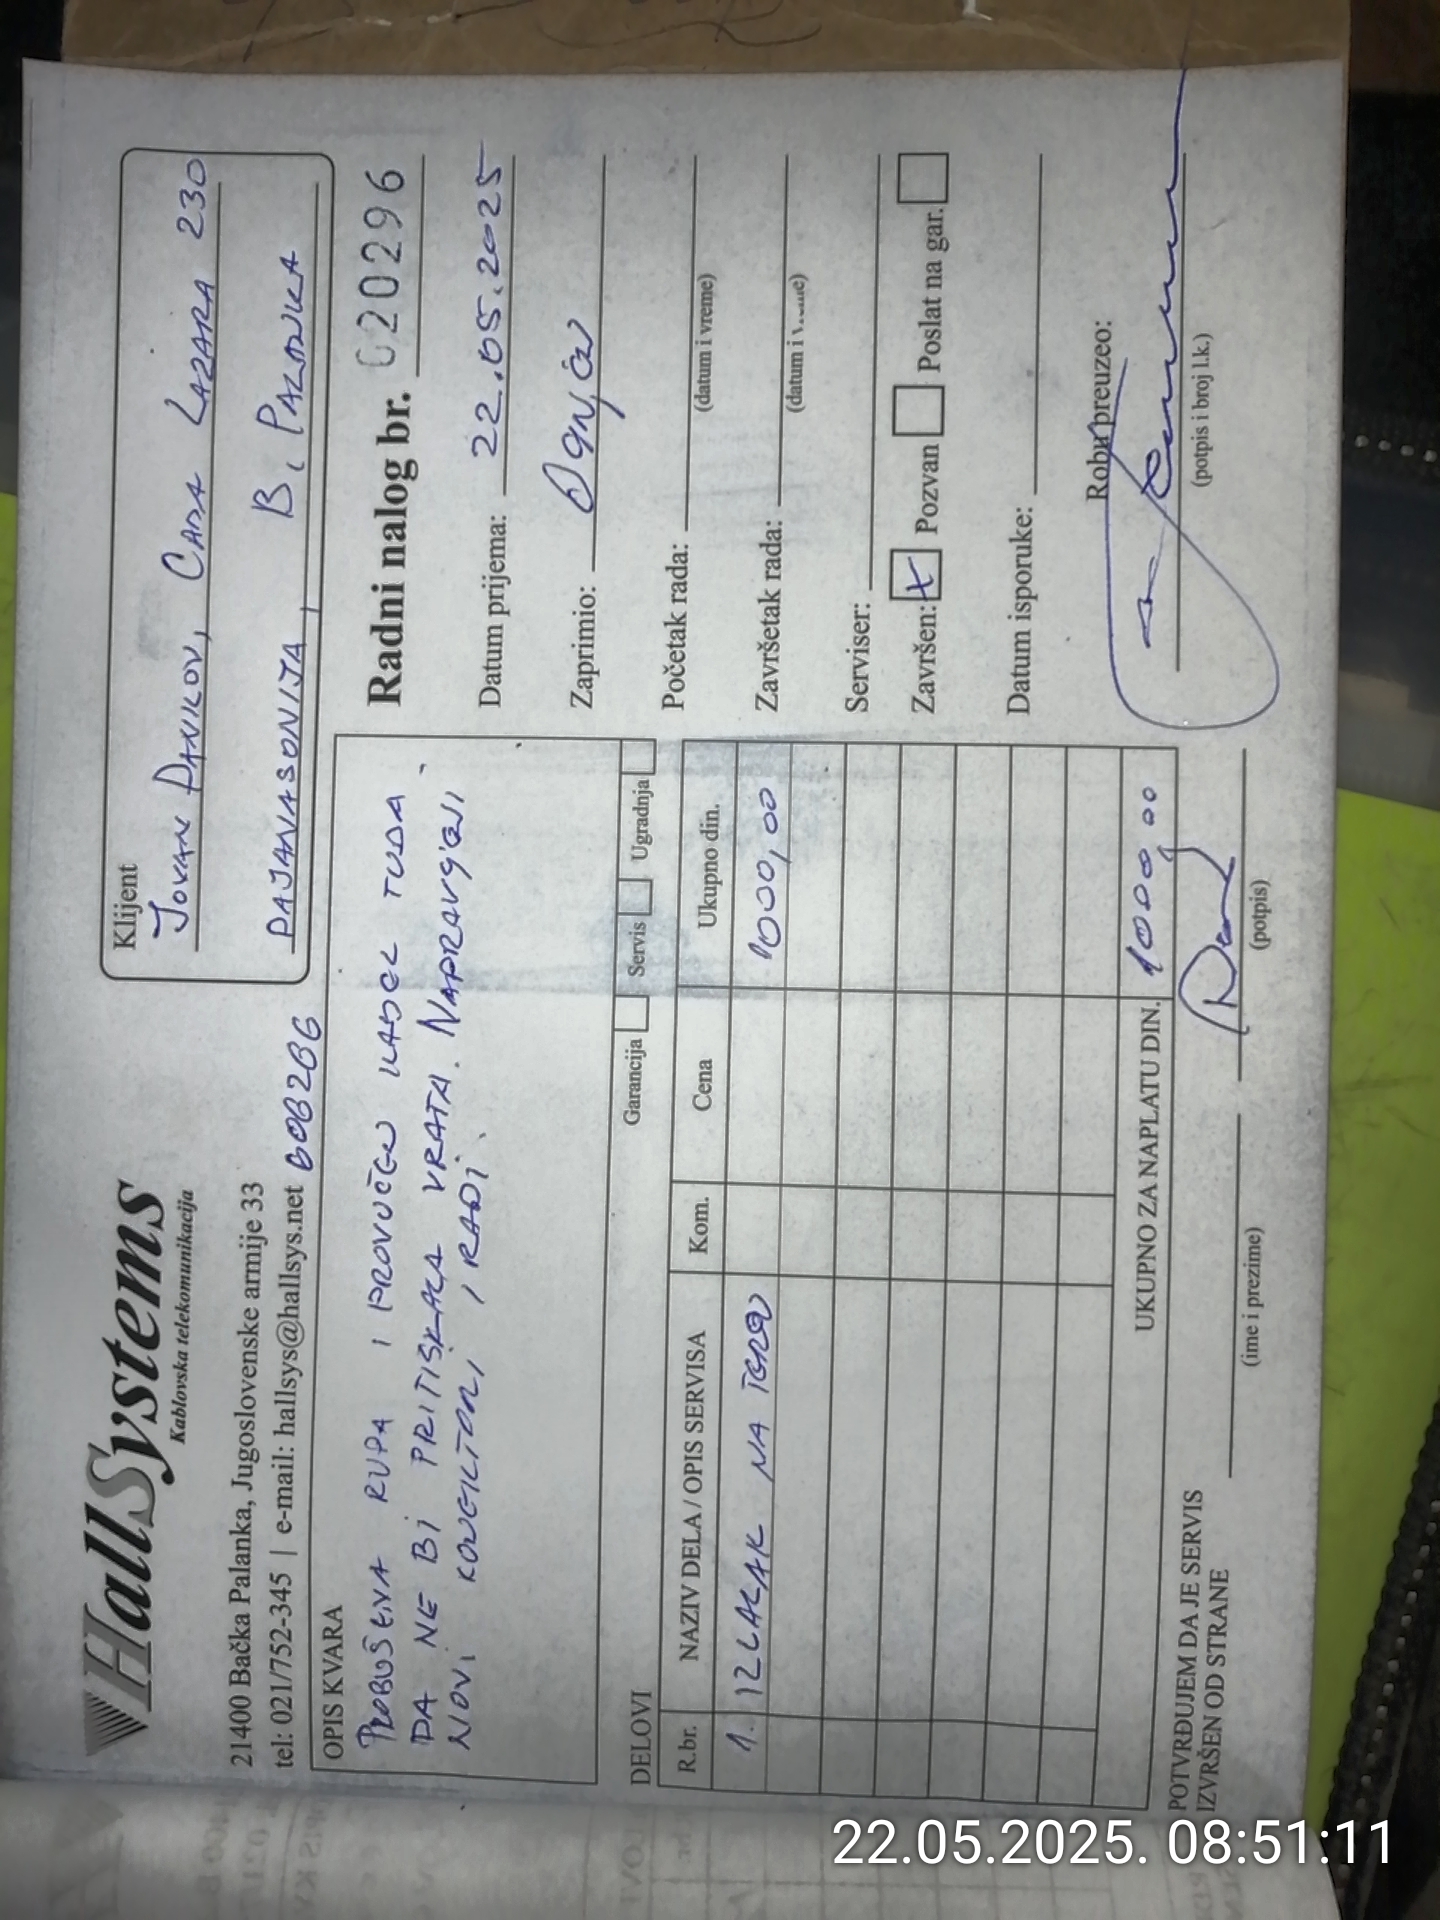 HallSystems
Kablovska telekomunikacija
21400 Bačka Palanka, Jugoslovenske armije 33
tel: 021/752-345 | e-mail: hallsys@hallsys.net
Klijent
JOVAN DANIKOV, CARA LAZARA 230
B. PALANKA
OPIS KVARA
PROBUŠENA RUPA I PROVUČEN KABEL TUDA
DA NE BI PRITISKALA VRATA. NAPRAVLJENI
NOVI KONEKTORI, I RADI.
Garancija Servis Ugradnja
DELOVI
R.br. NAZIV DELA / OPIS SERVISA Kom. Cena Ukupno din.
1. IZLAZAK NA TEREN 1000,00
UKUPNO ZA NAPLATU DIN. 1000,00
POTVRĐUJEM DA JE SERVIS
IZVRŠEN OD STRANE
(ime i prezime) (potpis)
Radni nalog br. 020296
Datum prijema: 22.05.2025
Zaprimio: Ognjen
Početak rada:
(datum i vreme)
Završetak rada:
(datum i vreme)
Serviser:
Završen: x Pozvan Poslat na gar.
Datum isporuke:
Robu preuzeo:
(potpis i broj l.k.)
22.05.2025. 08:51:11